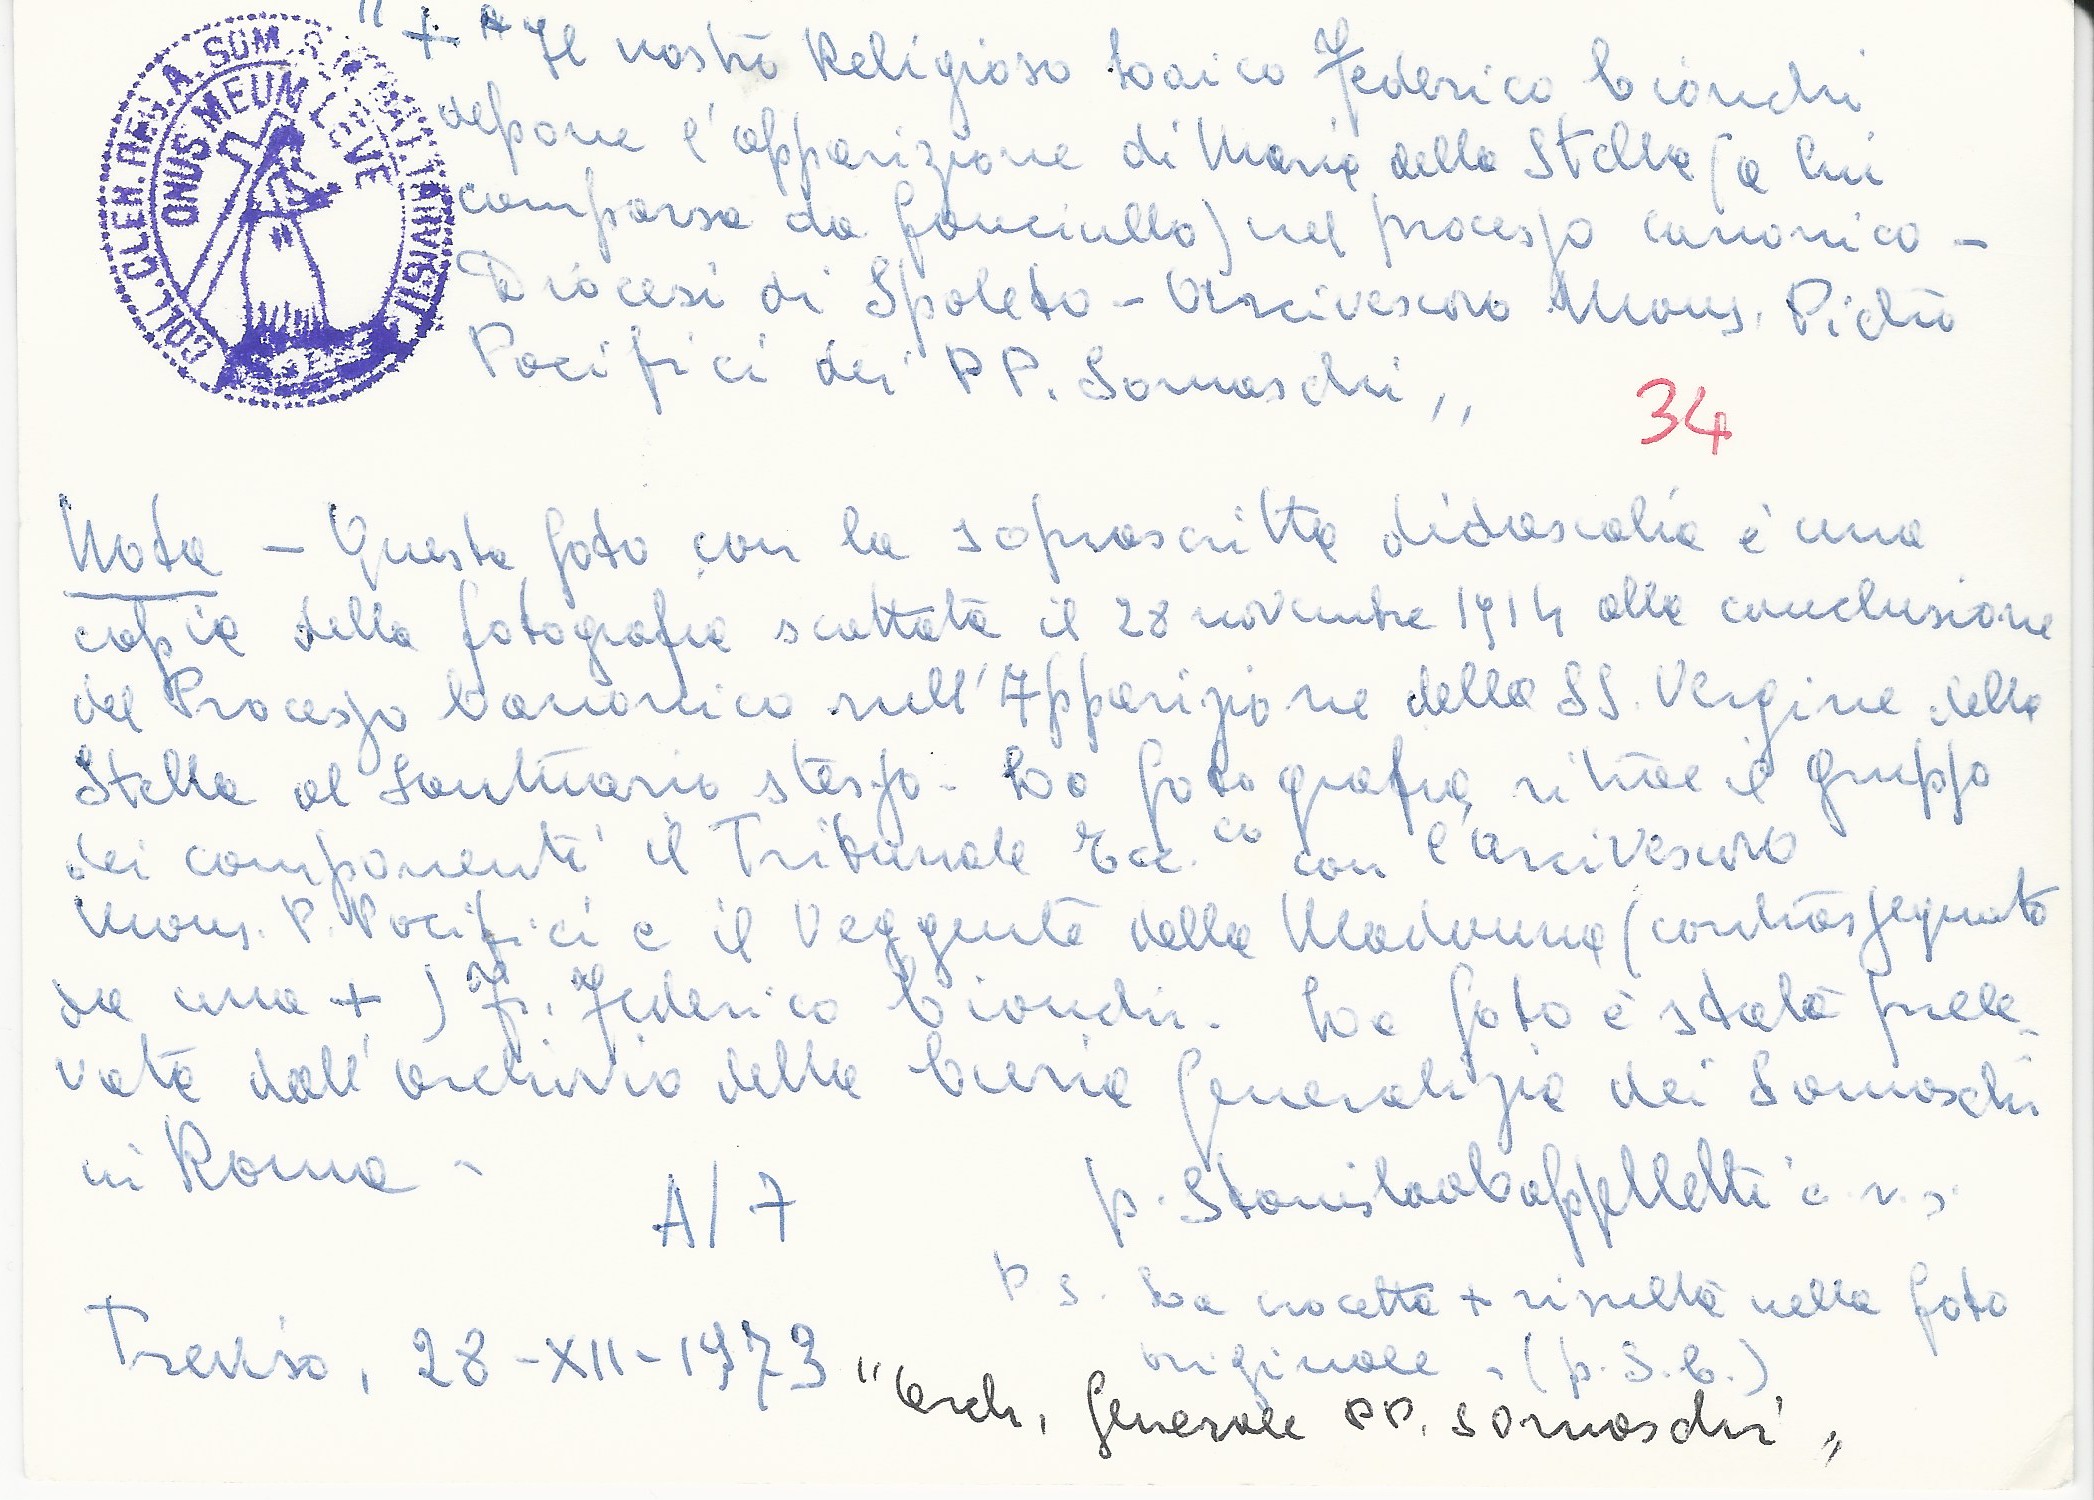 COLL. CLEM. RES. A. SOM. S. TARVISII
ONUS MEUM LEVE
" + A Il nostro Religioso Laico Federico Cionchi
depone l'apparizione di Maria della Stella (a lui
comparsa da fanciullo) nel processo canonico -
Diocesi di Spoleto - Arcivescovo Mons. Pietro
Pacifici dei PP. Somaschi "
34
Nota - Questa foto con la soprascritta didascalia è una
copia della fotografia scattata il 28 novembre 1914 alla conclusione
del Processo Canonico sull'Apparizione della SS. Vergine della
Stella al Santuario stesso. La fotografia ritrae il gruppo
dei componenti il Tribunale Ecc.co con l'arcivescovo
Mons. P. Pacifici e il Veggente della Madonna (contrassegnato
da una +) Fr. Federico Cionchi. La foto è stata prele-
vata dall'archivio della Curia Generalizia dei Somaschi
in Roma -
A/7
p. Stanislao Cappelletti c.r.s.
P.S. La crocetta + risulta nella foto
originale. (p.S.C.)
Treviso, 28-XII-1973
"Arch. Generale PP. Somaschi"